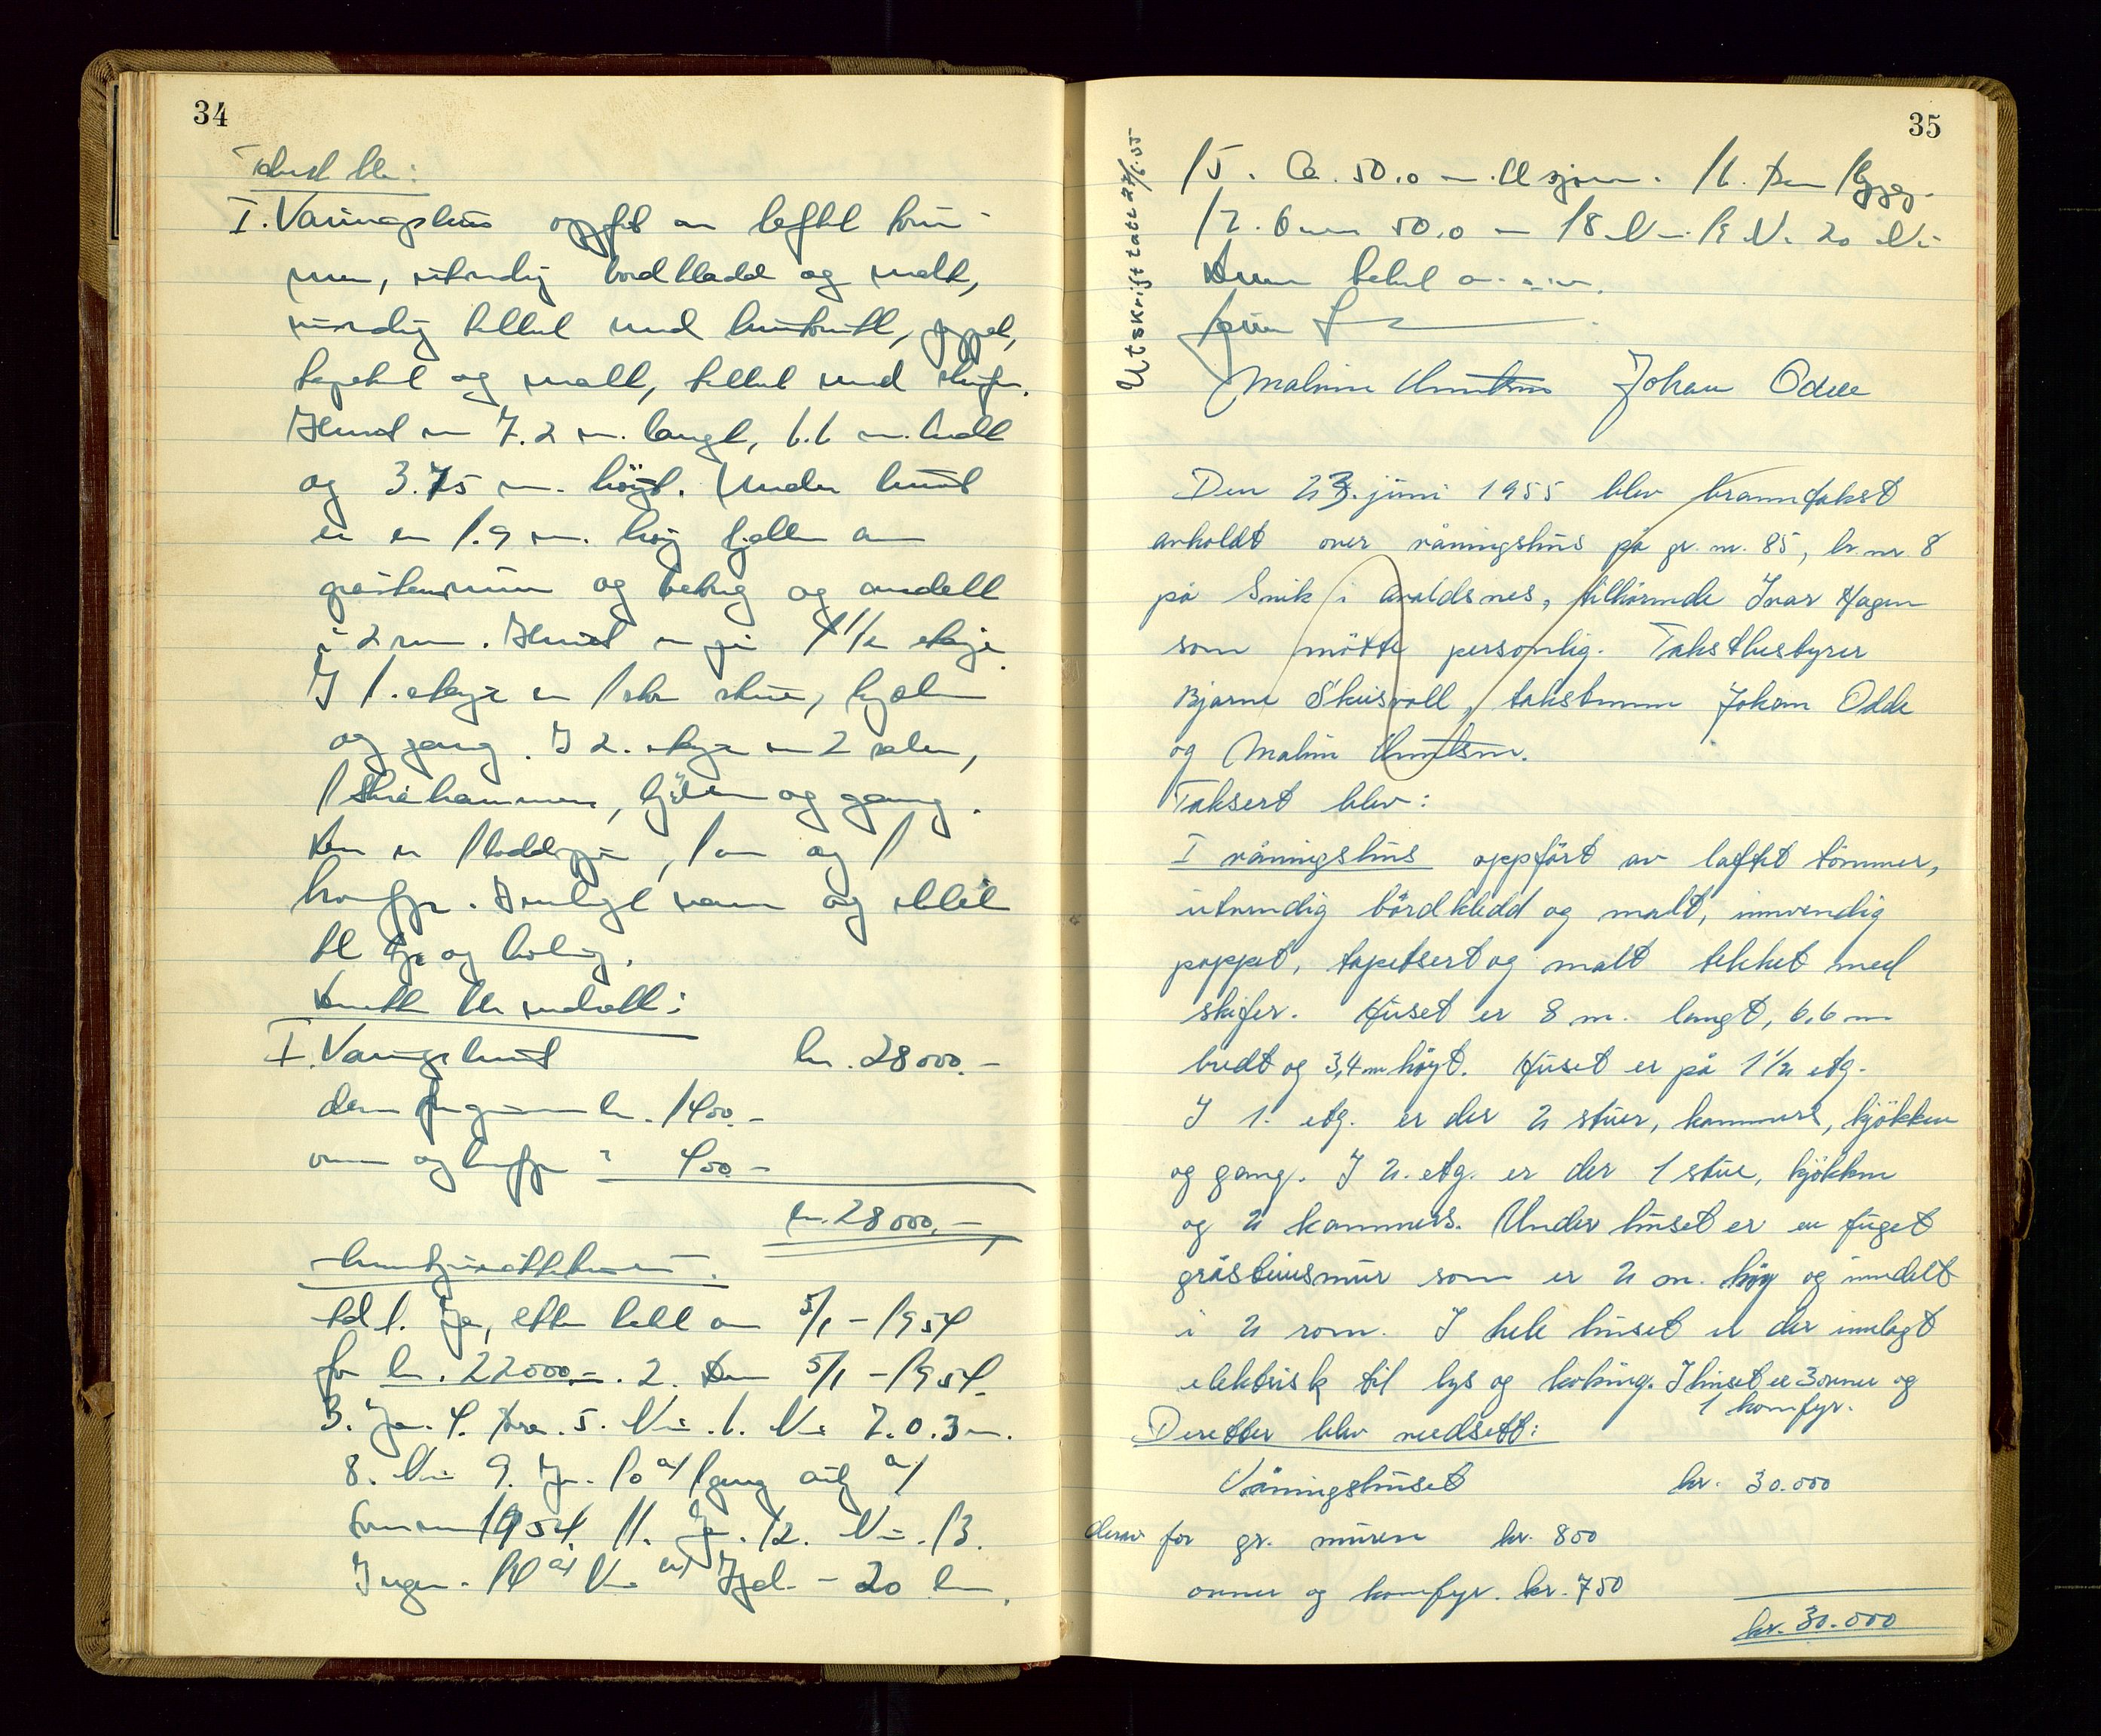 34
Taksert blev:
I. Våningshus oppført av laftet tøm-
mer, utvendig bordkledd og malt,
innvendig kledd med huntonitt, pappet,
tapetsert og malt, tekket med skifer.
Huset er 7.2 m. langt, 6.6 m. bredt
og 3.75 m. höyt. Under huset
er en 1.9 m. høy kjeller av
gråstensmur og betong og inndelt
i 2 rum. Huset er på 1 1/2 etasje
I 1. etasje er 1 stor stue, kjøkken
og gang. I 2. etasje er 2 soler,
1 kammer, og gang.
Den er
Innlagt vann og elektr.
til lys og koking.
Deretter blev nedsatt:
I. Våningshuset kr. 28000.-
derav for grunnmur kr. 1400.-
ovn og komfyr " 400.-
kr. 28000.-
Ad 1. Ja, etter takst av 5/1 - 1954
for kr. 22000.-. 2. Den 5/1 - 1954.
3. Ja. 4. 5. Nei. 6. Nei 7. 0.3 m.
8. Nei 9. Ja. 10 a/ 1 gang årlig a/
1954. 11. Ja. 12. Nei. 13.
Ingen. 14 a/ Nei - 20 km.
35
15. Ca. 50.0 m. til sjøen. 16. Den
17. Over 50.0 m 18 Nei. 19 Nei. 20 Nei
Malvin Knutsen Johan Odde
Utskrift tatt 27/6.55
Den 23. juni 1955 blev branntakst
avholdt over våningshus på gr. nr. 85, br. nr. 8
på Snik i Avaldsnes, tilhørende Ivar Hagen
som møtte personlig. Takstbestyrer
Bjarne Skeisvoll, takstmenn Johan Odde
og Malvin Knutsen.
Taksert blev:
I våningshus oppført av laftet tömmer,
utvendig bordkledd og malt, innvendig
pappet, tapetsert og malt tekket med
skifer. Huset er 8 m. langt, 6,6 m
bredt og 3,4 m höyt. Huset er på 1 1/2 etg.
I 1. etg. er der 2 stuer, kammers, kjökken
og gang. I 2. etg. er der 1 stue, kjökken
og 2 kammers. Under huset er en fuget
gråsteinsmur som er 2 m. høy og inndelt
i 2 rom. I hele huset er der innlagt
elektrisk til lys og koking. I huset er 3 ovner og
1 komfyr.
Deretter blev nedsett:
Våningshuset kr. 30.000
derav for gr. muren kr. 800
ovner og komfyr. kr. 750
kr. 30.000